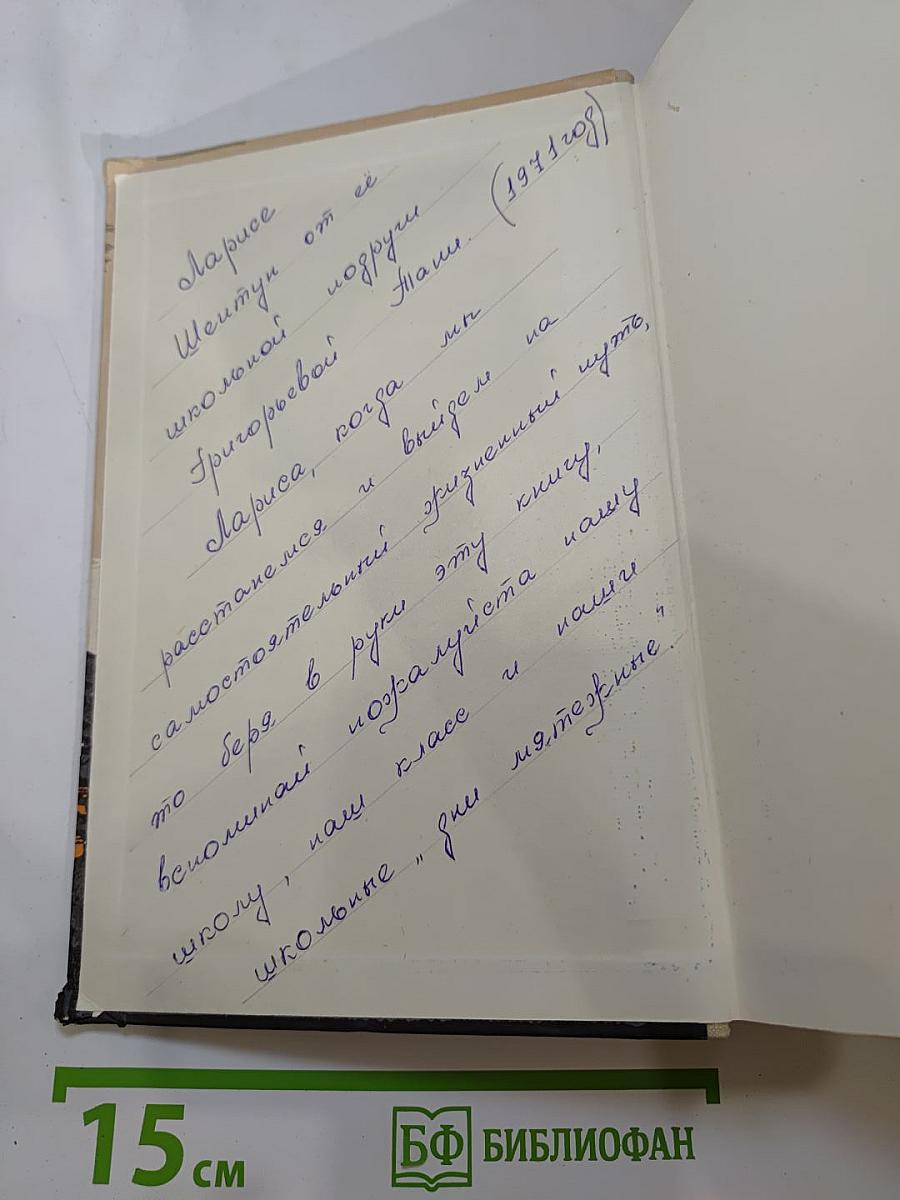 Ларисе
Шептун от её
школьной подруги
Григорьевой Тани. (1971 год)
Лариса, когда мы
расстанемся и выйдем на
самостоятельный жизненный путь,
то беря в руки эту книгу,
вспоминай пожалуйста нашу
школу, наш класс и наши
школьные „дни мятежные".
15 см
БФ БИБЛИОФАН